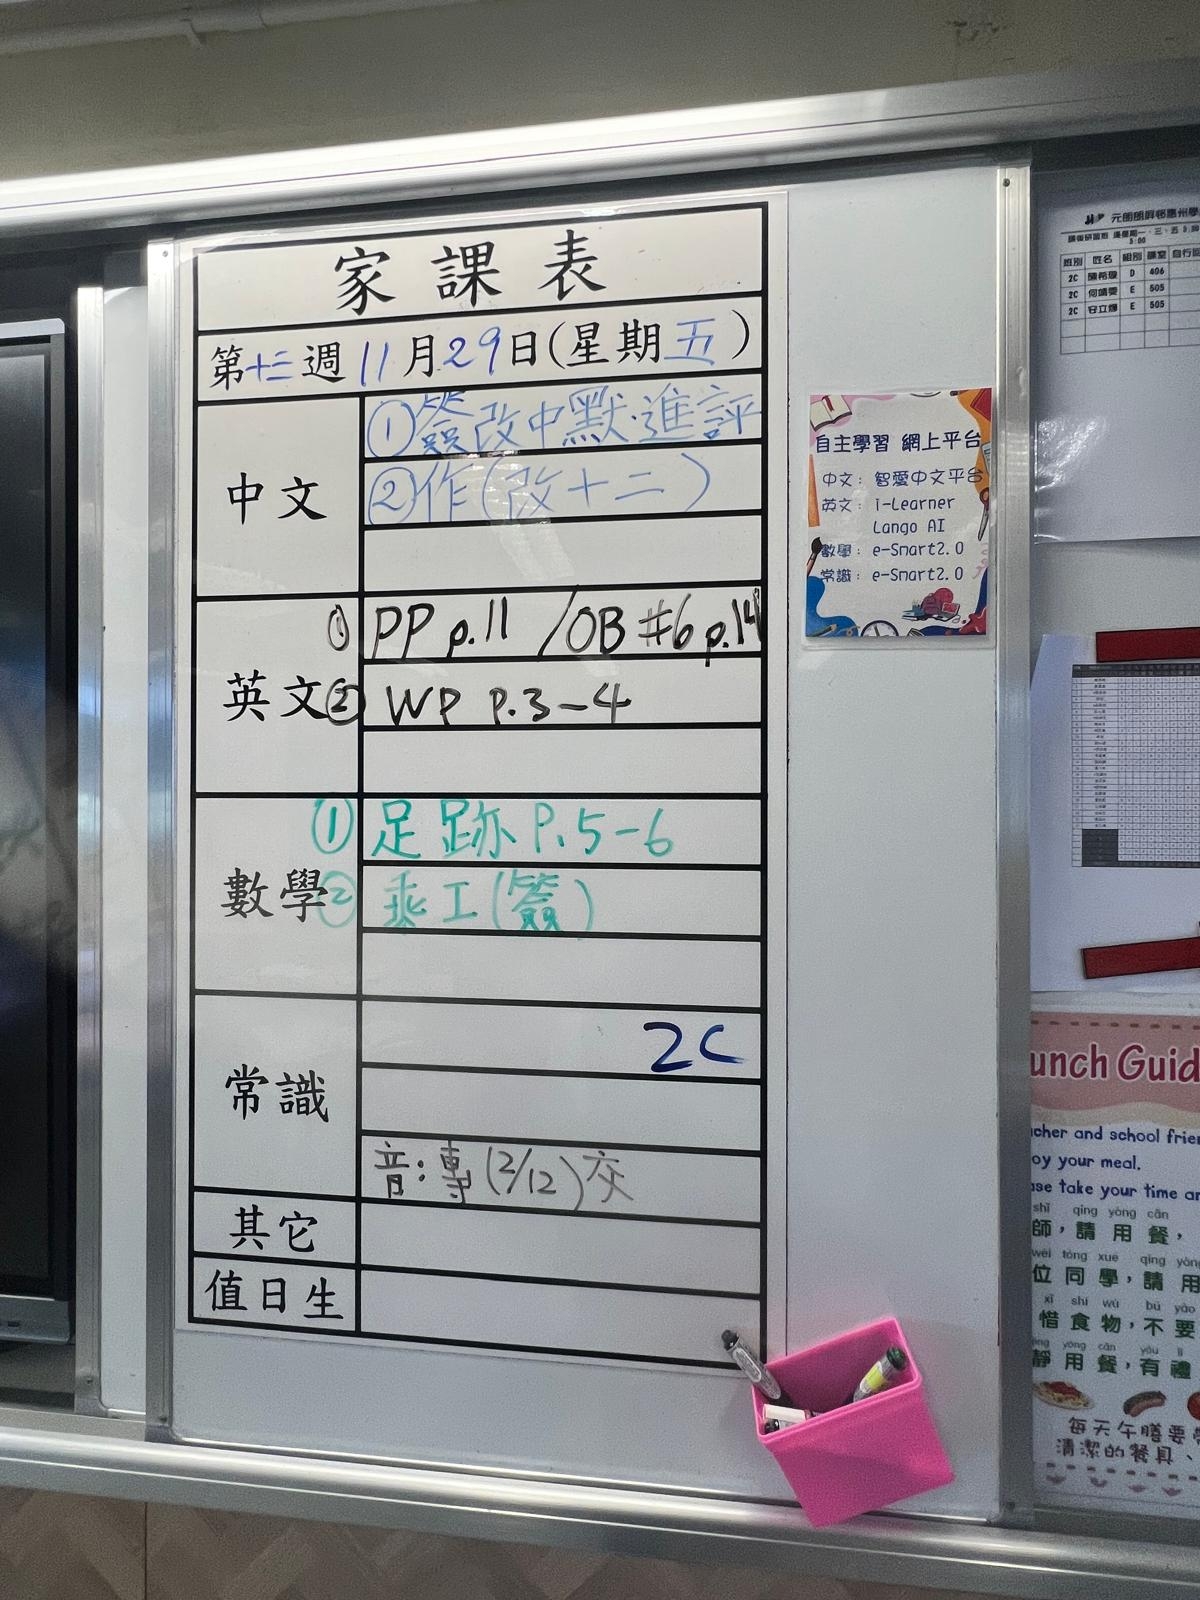 家課表
第十三週 11月29日(星期五)
中文
①簽改中默.進評
②作(改十二)
英文
① PP p.11 /OB #6 p.14
② WP P.3-4
數學
① 足跡 P.5-6
② 乘工(簽)
常識
2C
音:專(2/12)交
其它
值日生
自主學習 網上平台
中文: 智愛中文平台
英文: i-Learner
Lango AI
數學: e-Smart2.0
常識: e-Smart2.0
班別 姓名 組別 課室
2C D 406
2C E 505
2C E 505
unch Guid
cher and school frien
oy your meal.
ase take your time an
shī qǐng yòng cān
師,請用餐,
wèi tóng xué qǐng yòng
位同學,請用
xī shí wù bú yào
惜食物,不要
jìng yòng cān yǒu lǐ
靜用餐,有禮
每天午膳要
清潔的餐具、